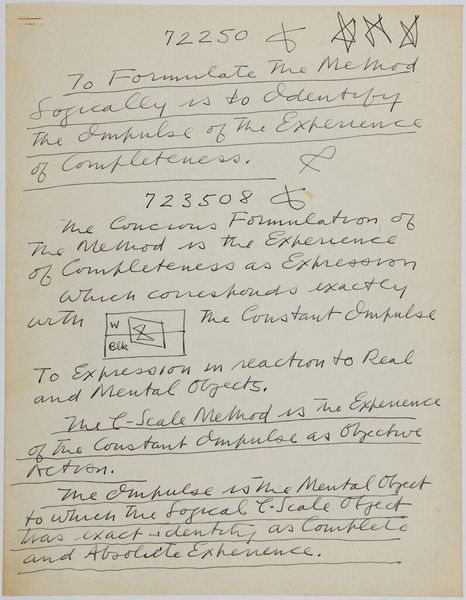 72250
To Formulate The Method
Logically is to Identify
the Impulse of the Experience
of Completeness.
723508
The Concious Formulation of
The Method is the Experience
of Completeness as Expression
which corresponds exactly
with W Blk The Constant Impulse
To Expression in reaction to Real
and Mental Objects.
The C-Scale Method is the Experience
of The Constant Impulse as Objective
Action.
The Impulse is the Mental Object
to which The Logical C-Scale Object
has exact identity as Complete
and Absolute Experience.